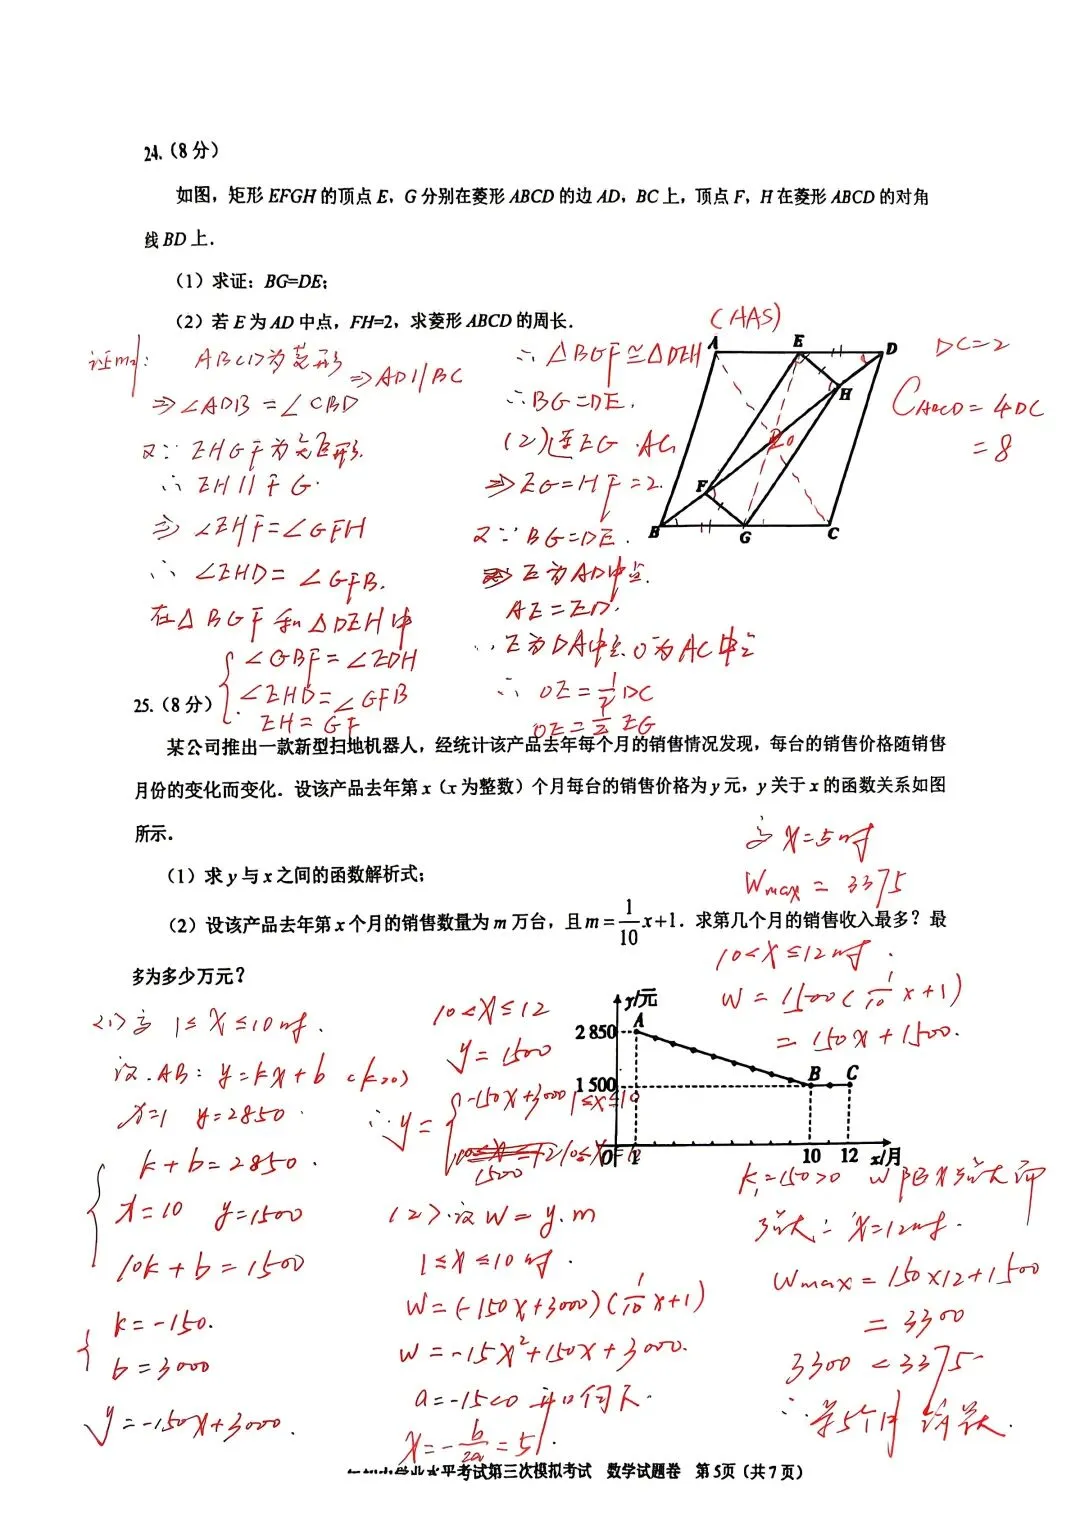 24.（8分）
如图，矩形 EFGH 的顶点 E，G 分别在菱形 ABCD 的边 AD，BC 上，顶点 F，H 在菱形 ABCD 的对角
线 BD 上．
（1）求证：BG=DE；
（2）若 E 为 AD 中点，FH=2，求菱形 ABCD 的周长．
ABCD为菱形
⇒AD//BC
⇒∠ADB=∠CBD
又∵EHGF为矩形
∴EH//FG.
⇒∠EHF=∠GFH
∴∠EHD=∠GFB.
在△BGF和△DEH中
∠GBF=∠EDH
∠EHD=∠GFB
EH=GF
(AAS)
∴△BGF≌△DEH
∴BG=DE.
(2)连EG.AC
⇒EG=HF=2.
又∵BG=DE.
E为AD中点.
AE=ED.
∴E为DA中点.O为AC中点
∴OE=1/2DC
OE=1/2EG
DC=2
C_ABCD=4DC
=8
A E D H O F B G C
25.（8分）
某公司推出一款新型扫地机器人，经统计该产品去年每个月的销售情况发现，每台的销售价格随销售
月份的变化而变化．设该产品去年第 x（x 为整数）个月每台的销售价格为 y 元，y 关于 x 的函数关系如图
所示．
（1）求 y 与 x 之间的函数解析式；
（2）设该产品去年第 x 个月的销售数量为 m 万台，且 m=1/10x+1．求第几个月的销售收入最多？最
多为多少万元？
(1)当1≤x≤10时.
设.AB：y=kx+b
x=1 y=2850
k+b=2850.
x=10 y=1500
10k+b=1500
k=-150.
b=3000
y=-150x+3000.
10<x≤12
y=1500
∴y=
-150x+3000 1≤x≤10
1500
(2).设W=y.m
1≤x≤10时.
W=(-150x+3000)(1/10x+1)
W=-15x²+150x+3000.
a=-15<0 开口向下.
x=-b/2a=5.
当x=5时
Wmax=3375
10<x≤12时.
W=1500(1/10x+1)
=150x+1500.
y/元
A
2 850
1 500
B C
O 1 10 12 x/月
k=150>0 W随x增大而
增大∴x=12时.
Wmax=150×12+1500
=3300
3300<3375
∴第5个月
水平考试第三次模拟考试 数学试题卷 第5页（共7页）